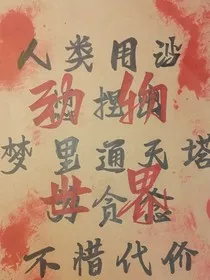 人类用沙
动物
捏
梦里通天塔
世界
贪
不惜代价